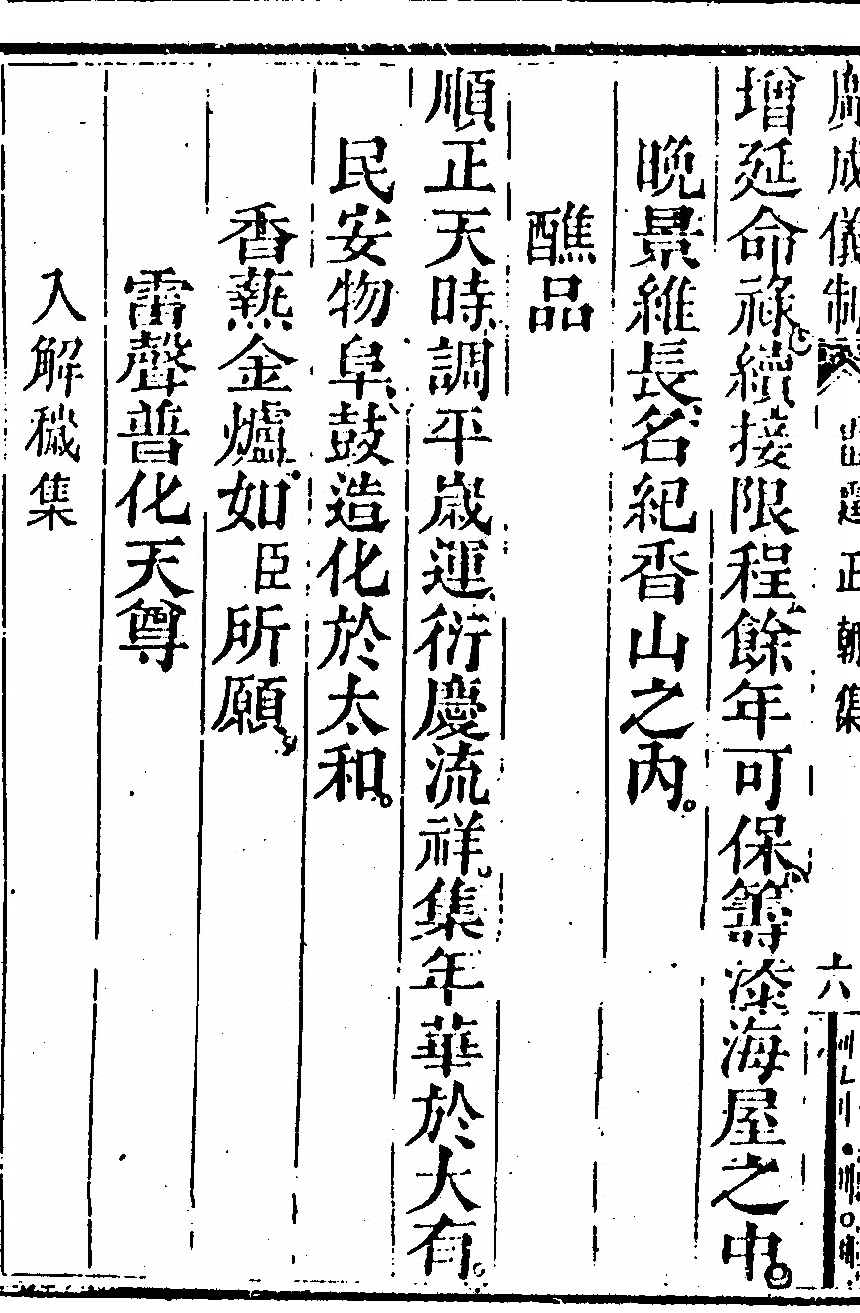 廣成儀制 雷霆正朝集 六
增延命祿續接限程餘年可保籌添海屋之中
晩景維長名紀香山之內
醮品
順正天時調平歲運衍慶流祥集年華於大有
民安物阜鼓造化於太和
香爇金爐如臣所願
雷聲普化天尊
入解穢集